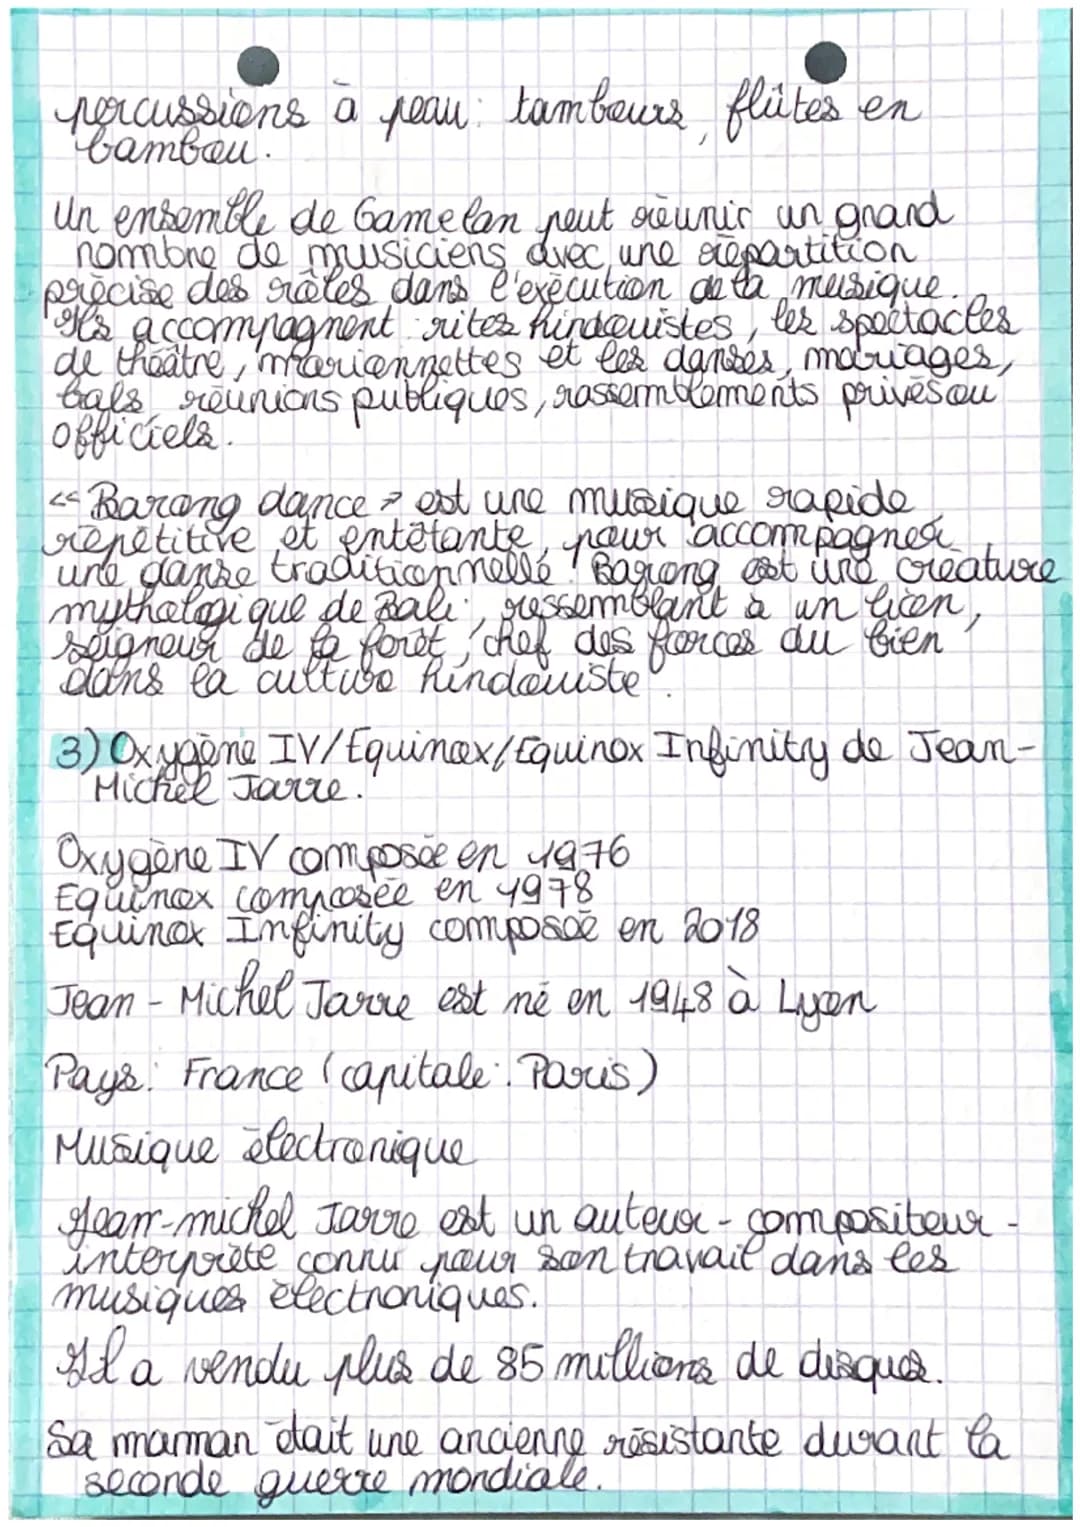 percussions à peau : tambours, flûtes en
bambou.
Un ensemble de Gamelan peut réunir un grand
nombre de musiciens avec une répartition
précise des rôles dans l'exécution de la musique.
Ils accompagnent : rites hindouistes, les spectacles
de théâtre, mariannettes et les danses, mariages,
bals, réunions publiques, rassemblements privés ou
officiels.
<< Barong dance > est une musique rapide,
répétitive et entêtante, pour accompagner
une danse traditionnelle. Barong est une créature
mythologique de Bali, ressemblant à un lion,
seigneur de la forêt, chef des forces du bien
dans la culture hindouiste.
3) Oxygène IV/Equinox/Equinox Infinity de Jean-
Michel Jarre.
Oxygène IV composée en 1976
Equinox composée en 1978
Equinox Infinity composé en 2018
Jean - Michel Jarre est né en 1948 à Lyon
Pays : France (capitale : Paris)
Musique électronique
Jean-michel Jarre est un auteur - compositeur -
interprète connu pour son travail dans les
musiques électroniques.
Il a vendu plus de 85 millions de disques.
Sa maman était une ancienne résistante durant la
seconde guerre mondiale.